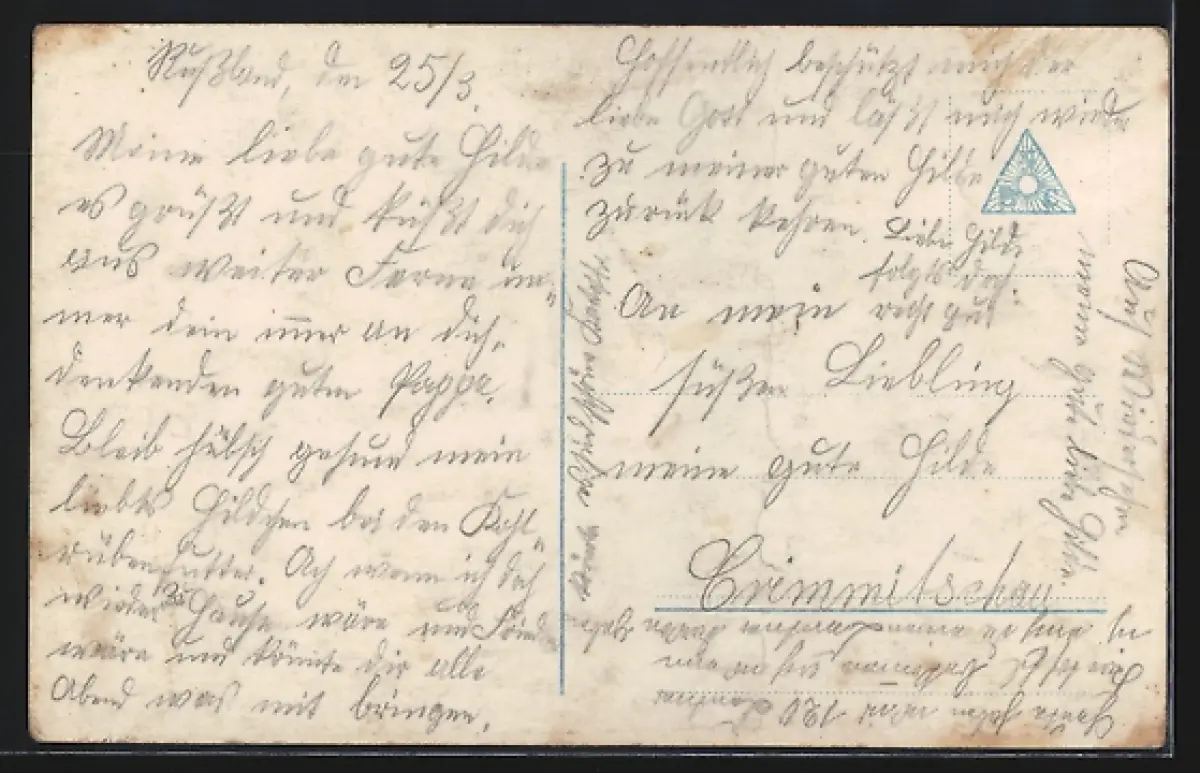 Rußland, den 25/3.
Meine liebe gute Hilde
es grüßt und küßt dich
aus weiter Ferne im-
mer dein immer an dich
denkenden guten Pappa.
Bleib hübsch gesund mein
liebes Hildchen bei den Kohl-
rübenfutter. Ach wenn ich doch
wieder zu Hause wäre und Frieden
wäre und könnte dir alle
Abend was mit bringen.
Hoffendlich beschützt mich der
liebe Gott und läßt mich wieder
zu meiner guten Hilde
zurück kehren. Liebe Hilde
folgst doch
recht gut
An mein
süßen Liebling
meine gute Hilde
Crimmitschau
Auf Wiedersehen
meine gute liebe Hilde